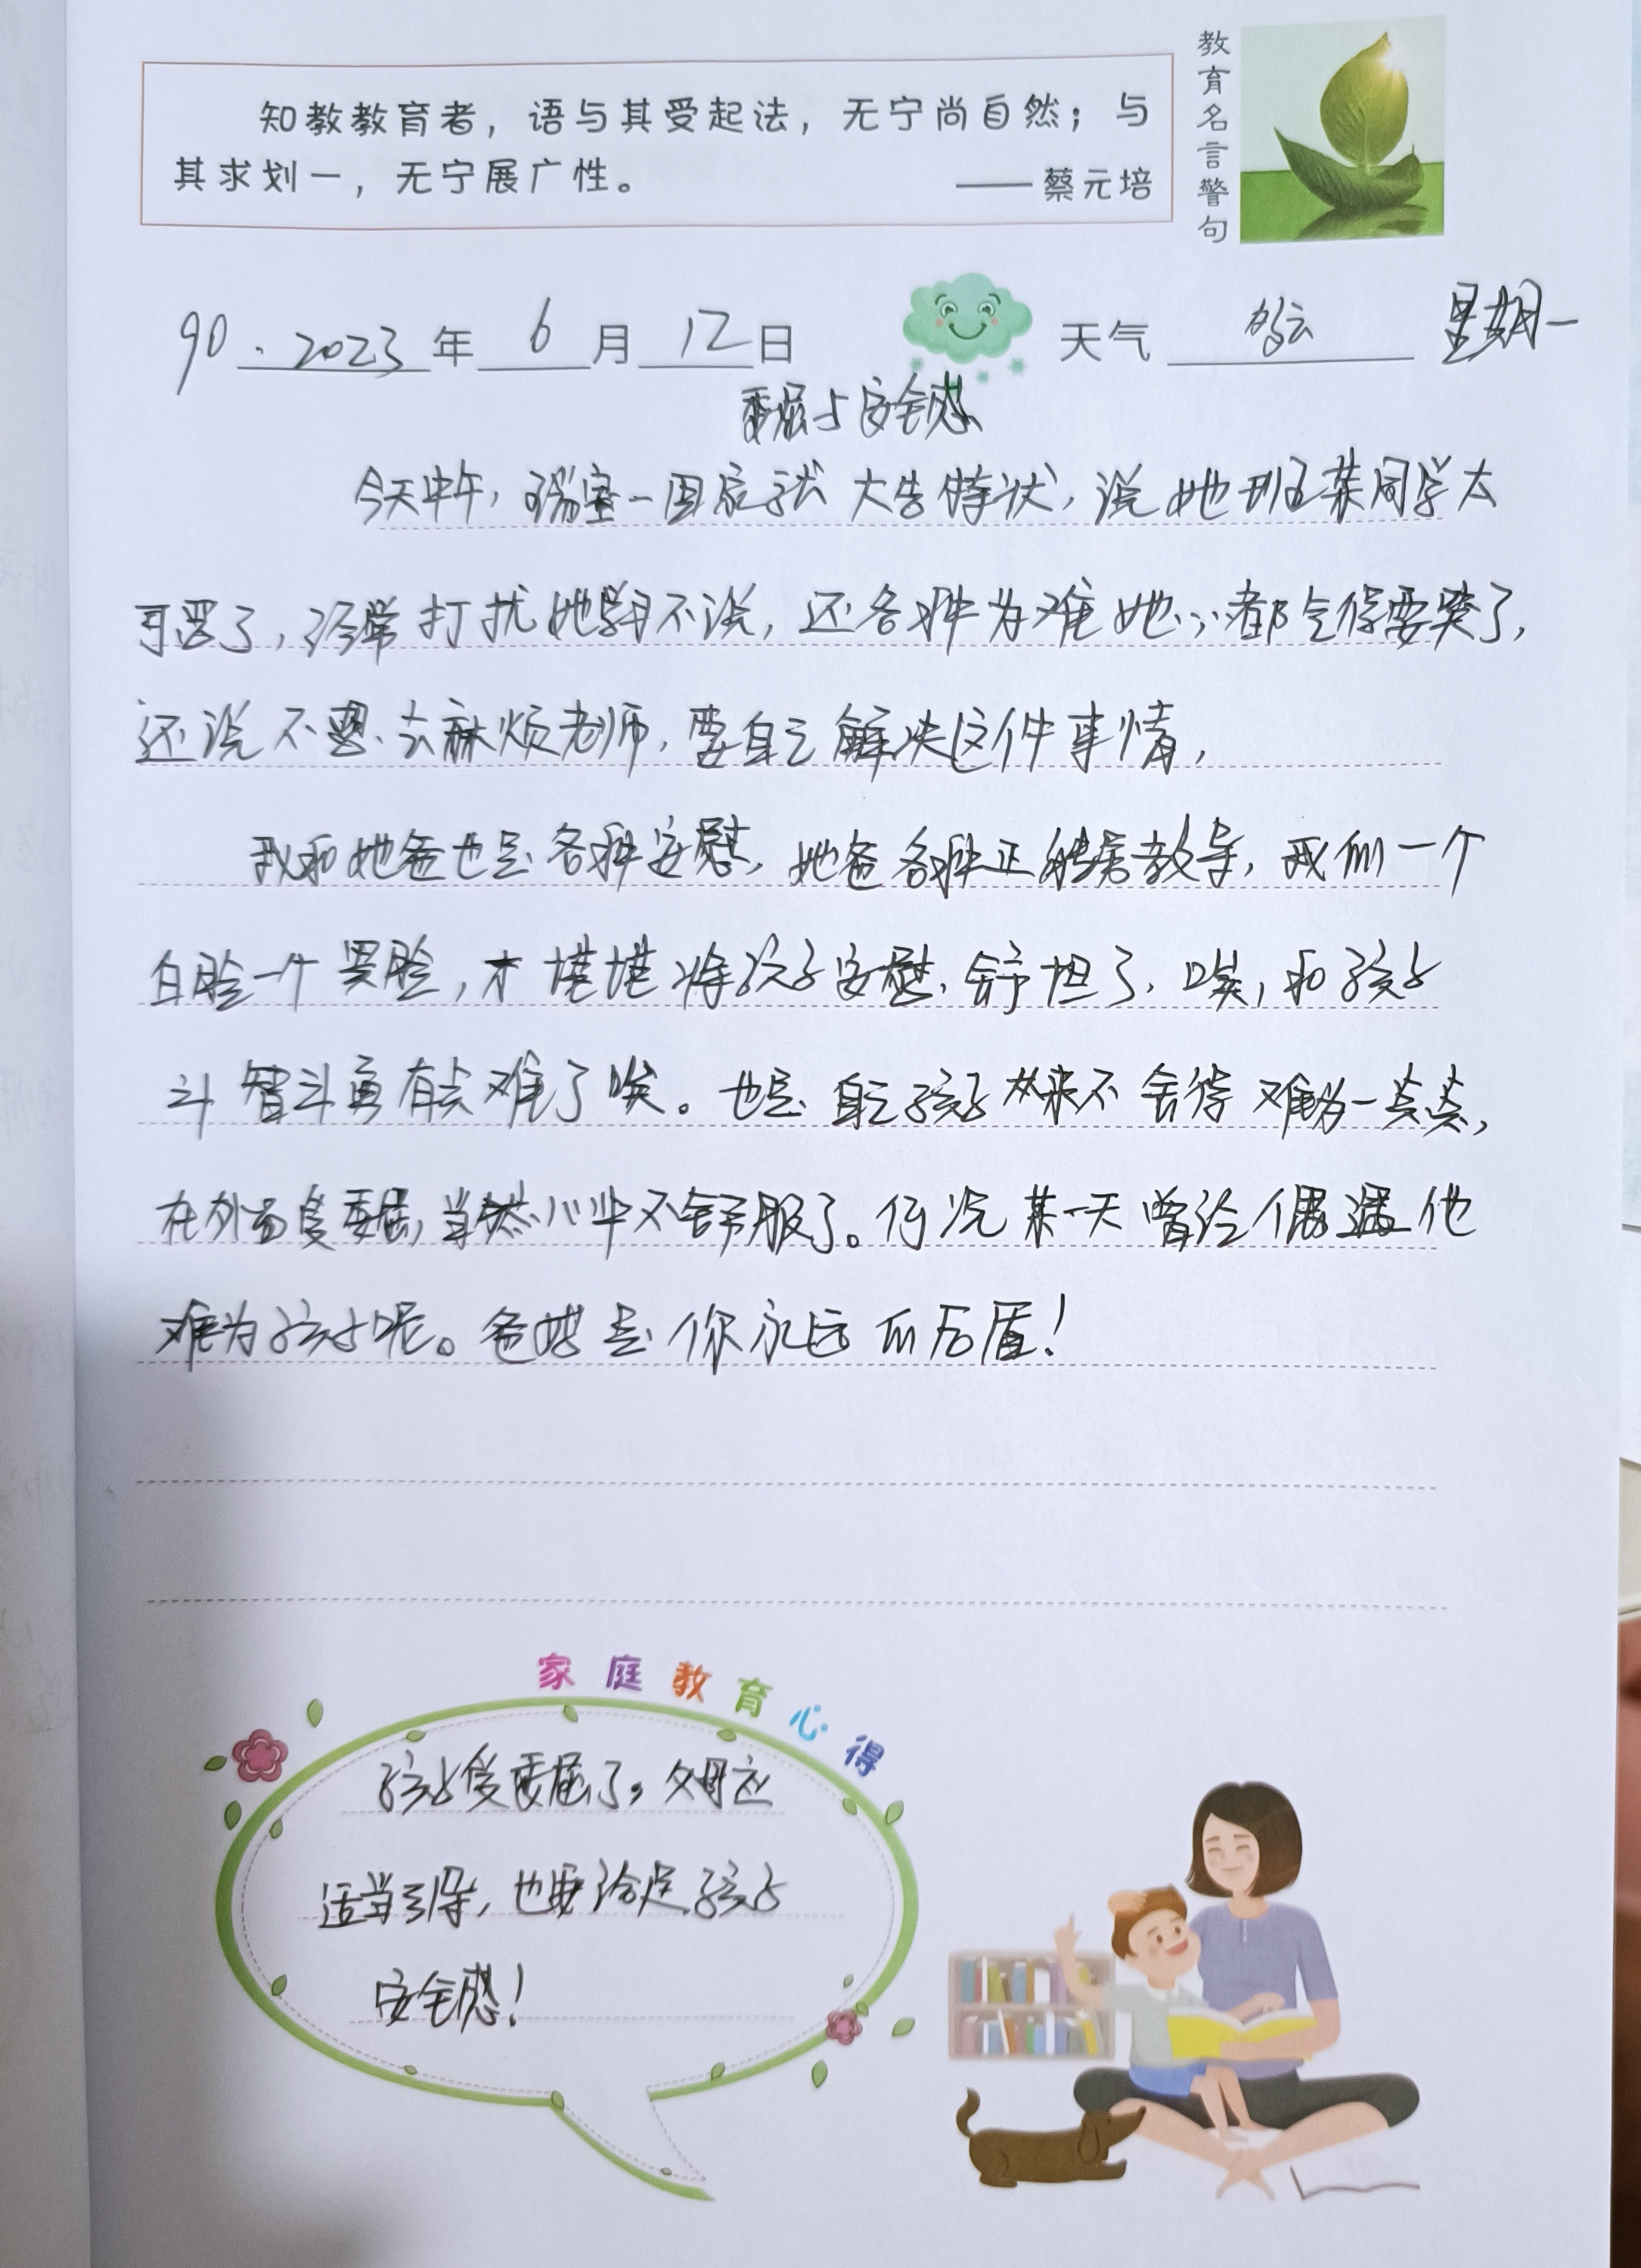 知教教育者，语与其受起法，无宁尚自然；与
其求划一，无宁展广性。 ——蔡元培
教育名言警句
90、2023年6月12日 天气 多云 星期一
委屈与安全感
今天中午，一回家就大告特状，说她班上某同学太
可恶了，经常打扰她学习不说，还各种为难她，都气得要哭了，
还说不要去麻烦老师，要自己解决这件事情，
我和她爸也是各种安慰，她爸各种正能量教导，我们一个
白脸一个黑脸，才堪堪将孩子安慰舒坦了，唉，和孩子
斗智斗勇有点难了唉。也是自己孩子从来不舍得难为一点点，
在外面受委屈，当然心里不舒服了。何况某一天曾经偶遇他
难为孩子呢。爸妈是你永远的后盾！
家庭教育心得
孩子受委屈了，父母应
适当引导，也要给足孩子
安全感！